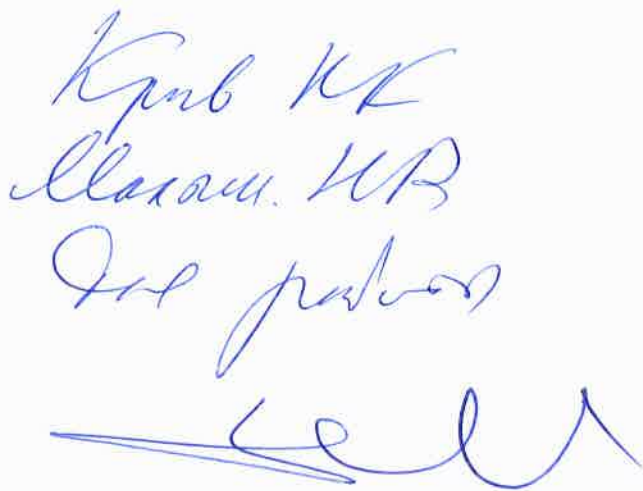 Крив НК
Макаш. НВ
Для работы